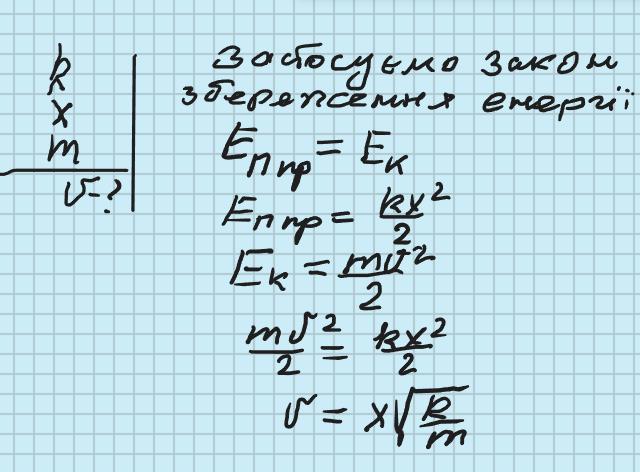 k
x
m
v-?
Застосуємо закон
збереження енергії
Eп пр = Eк
Eп пр = kx²/2
Eк = mv²/2
mv²/2 = kx²/2
v = x√(k/m)